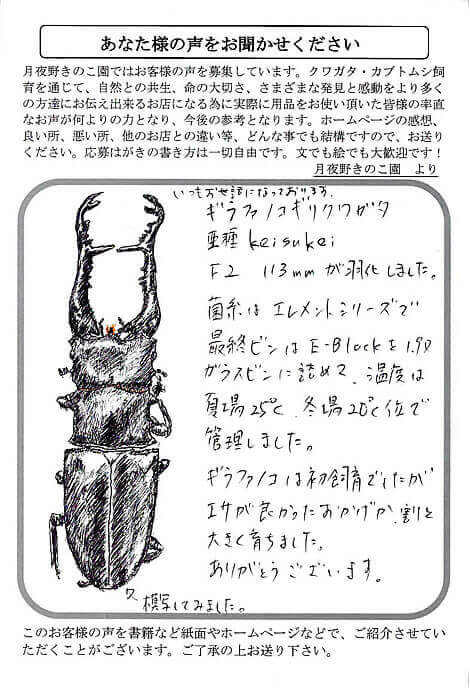 あなた様の声をお聞かせください
月夜野きのこ園ではお客様の声を募集しています。クワガタ・カブトムシ飼
育を通じて、自然との共生、命の大切さ、さまざまな発見と感動をより多く
の方達にお伝え出来るお店になる為に実際に用品をお使い頂いた皆様の率直
なお声が何よりの力となり、今後の参考となります。ホームページの感想、
良い所、悪い所、他のお店との違い等、どんな事でも結構ですので、お送り
ください。応募はがきの書き方は一切自由です。文でも絵でも大歓迎です！
月夜野きのこ園　より
いつもお世話になっております。
ギラファノコギリクワガタ
亜種 keisukei
F2　113mmが羽化しました。
菌糸はエレメントシリーズで
最終ビンはE-Blockを1.9ℓ
ガラスビンに詰めて、温度は
夏場25℃、冬場20℃位で
管理しました。
ギラファノコは初飼育でしたが
エサが良かったおかげか、割と
大きく育ちました。
ありがとうございます。
模写してみました。
このお客様の声を書籍など紙面やホームページなどで、ご紹介させてい
ただくことがございます。ご了承の上お送り下さい。